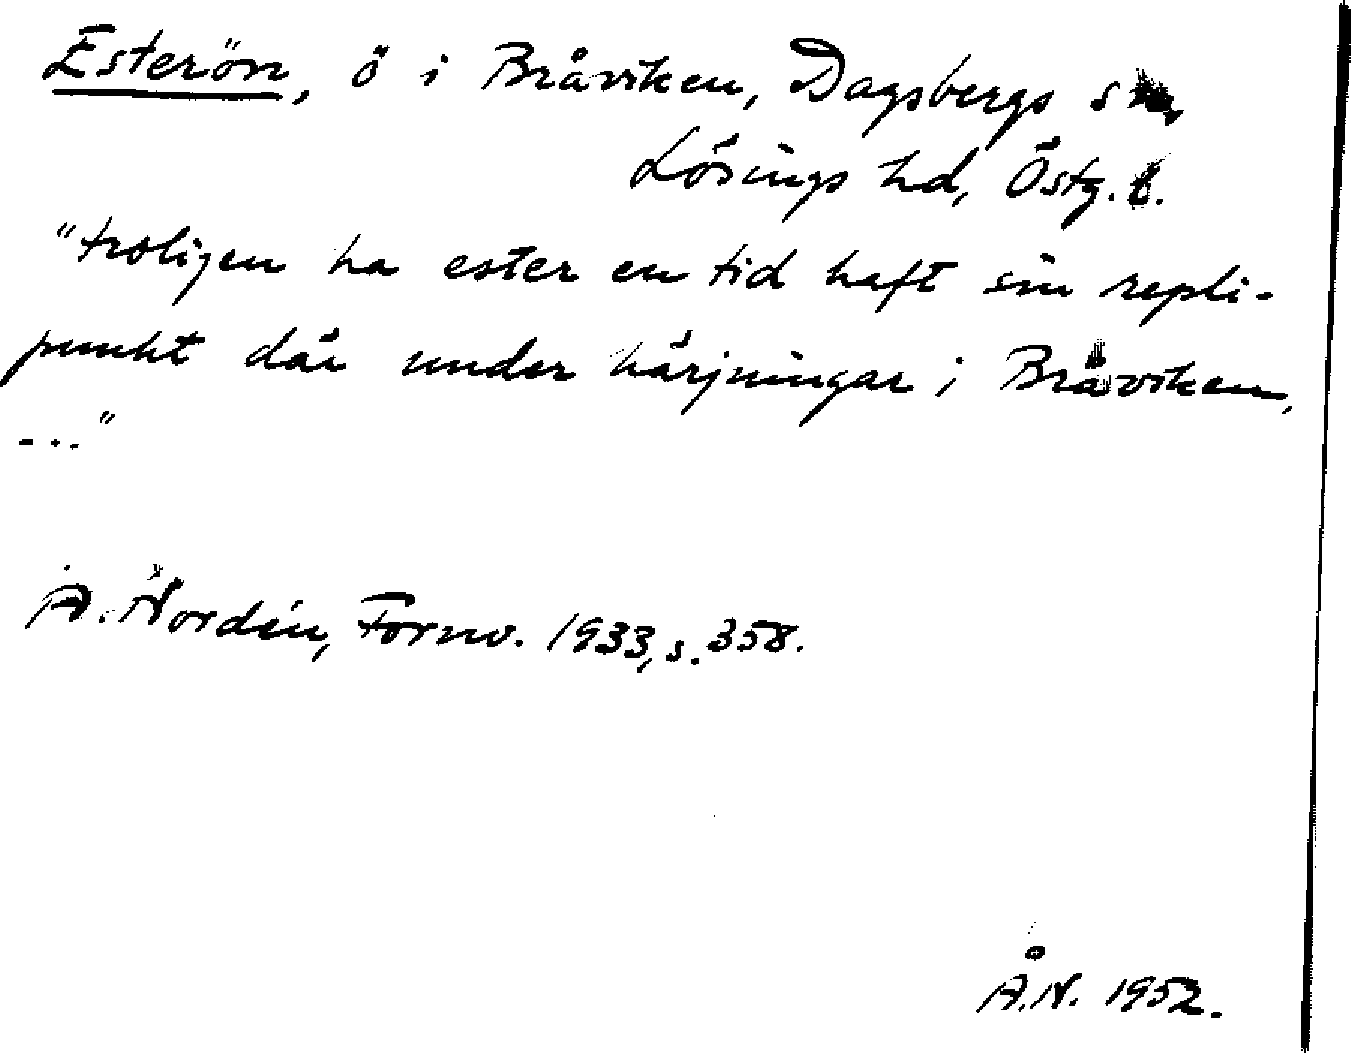 Esterön, ö i Bråviken, Dagsbergs sn,
Lösings hd, Östg. l.
"troligen ha ester en tid haft sin repli-
punkt där under härjningar i Bråviken,
..."
A. Nordén, Fornv. 1933, s. 358.
Å.N. 1952.